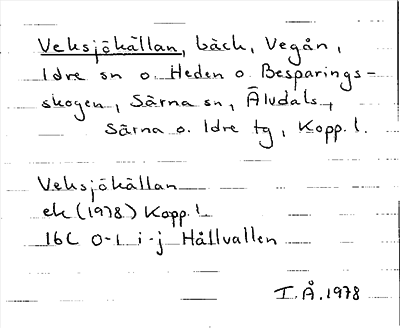 Veksjökällan, bäck, Vegån,
Idre sn o. Heden o Besparings-
skogen, Särna sn, Älvdals,
Särna o. Idre tg, Kopp. l.
Veksjökällan
ek (1978) Kopp. l
16C 0-1 i-j Hållvallen
I.Å.1978